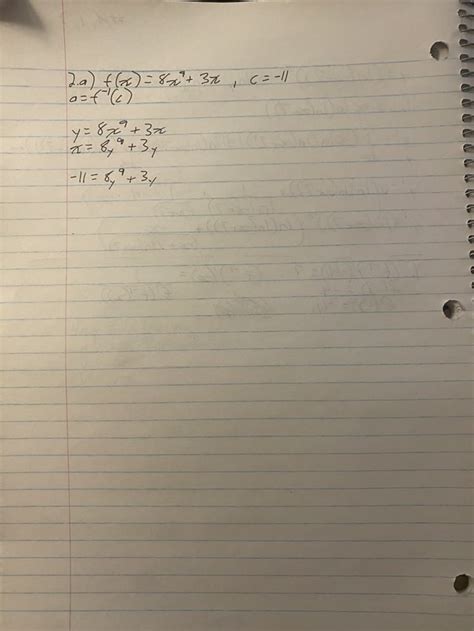 2.a) f(x) = 8x⁹ + 3x , c = -11
a = f⁻¹(c)
y = 8x⁹ + 3x
x = 8y⁹ + 3y
-11 = 8y⁹ + 3y